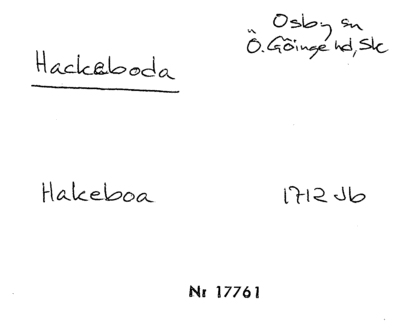 Osby sn
Ö. Göinge hd, Sk
Hackeboda
Hakeboa 1712 Jb
Nr 17761